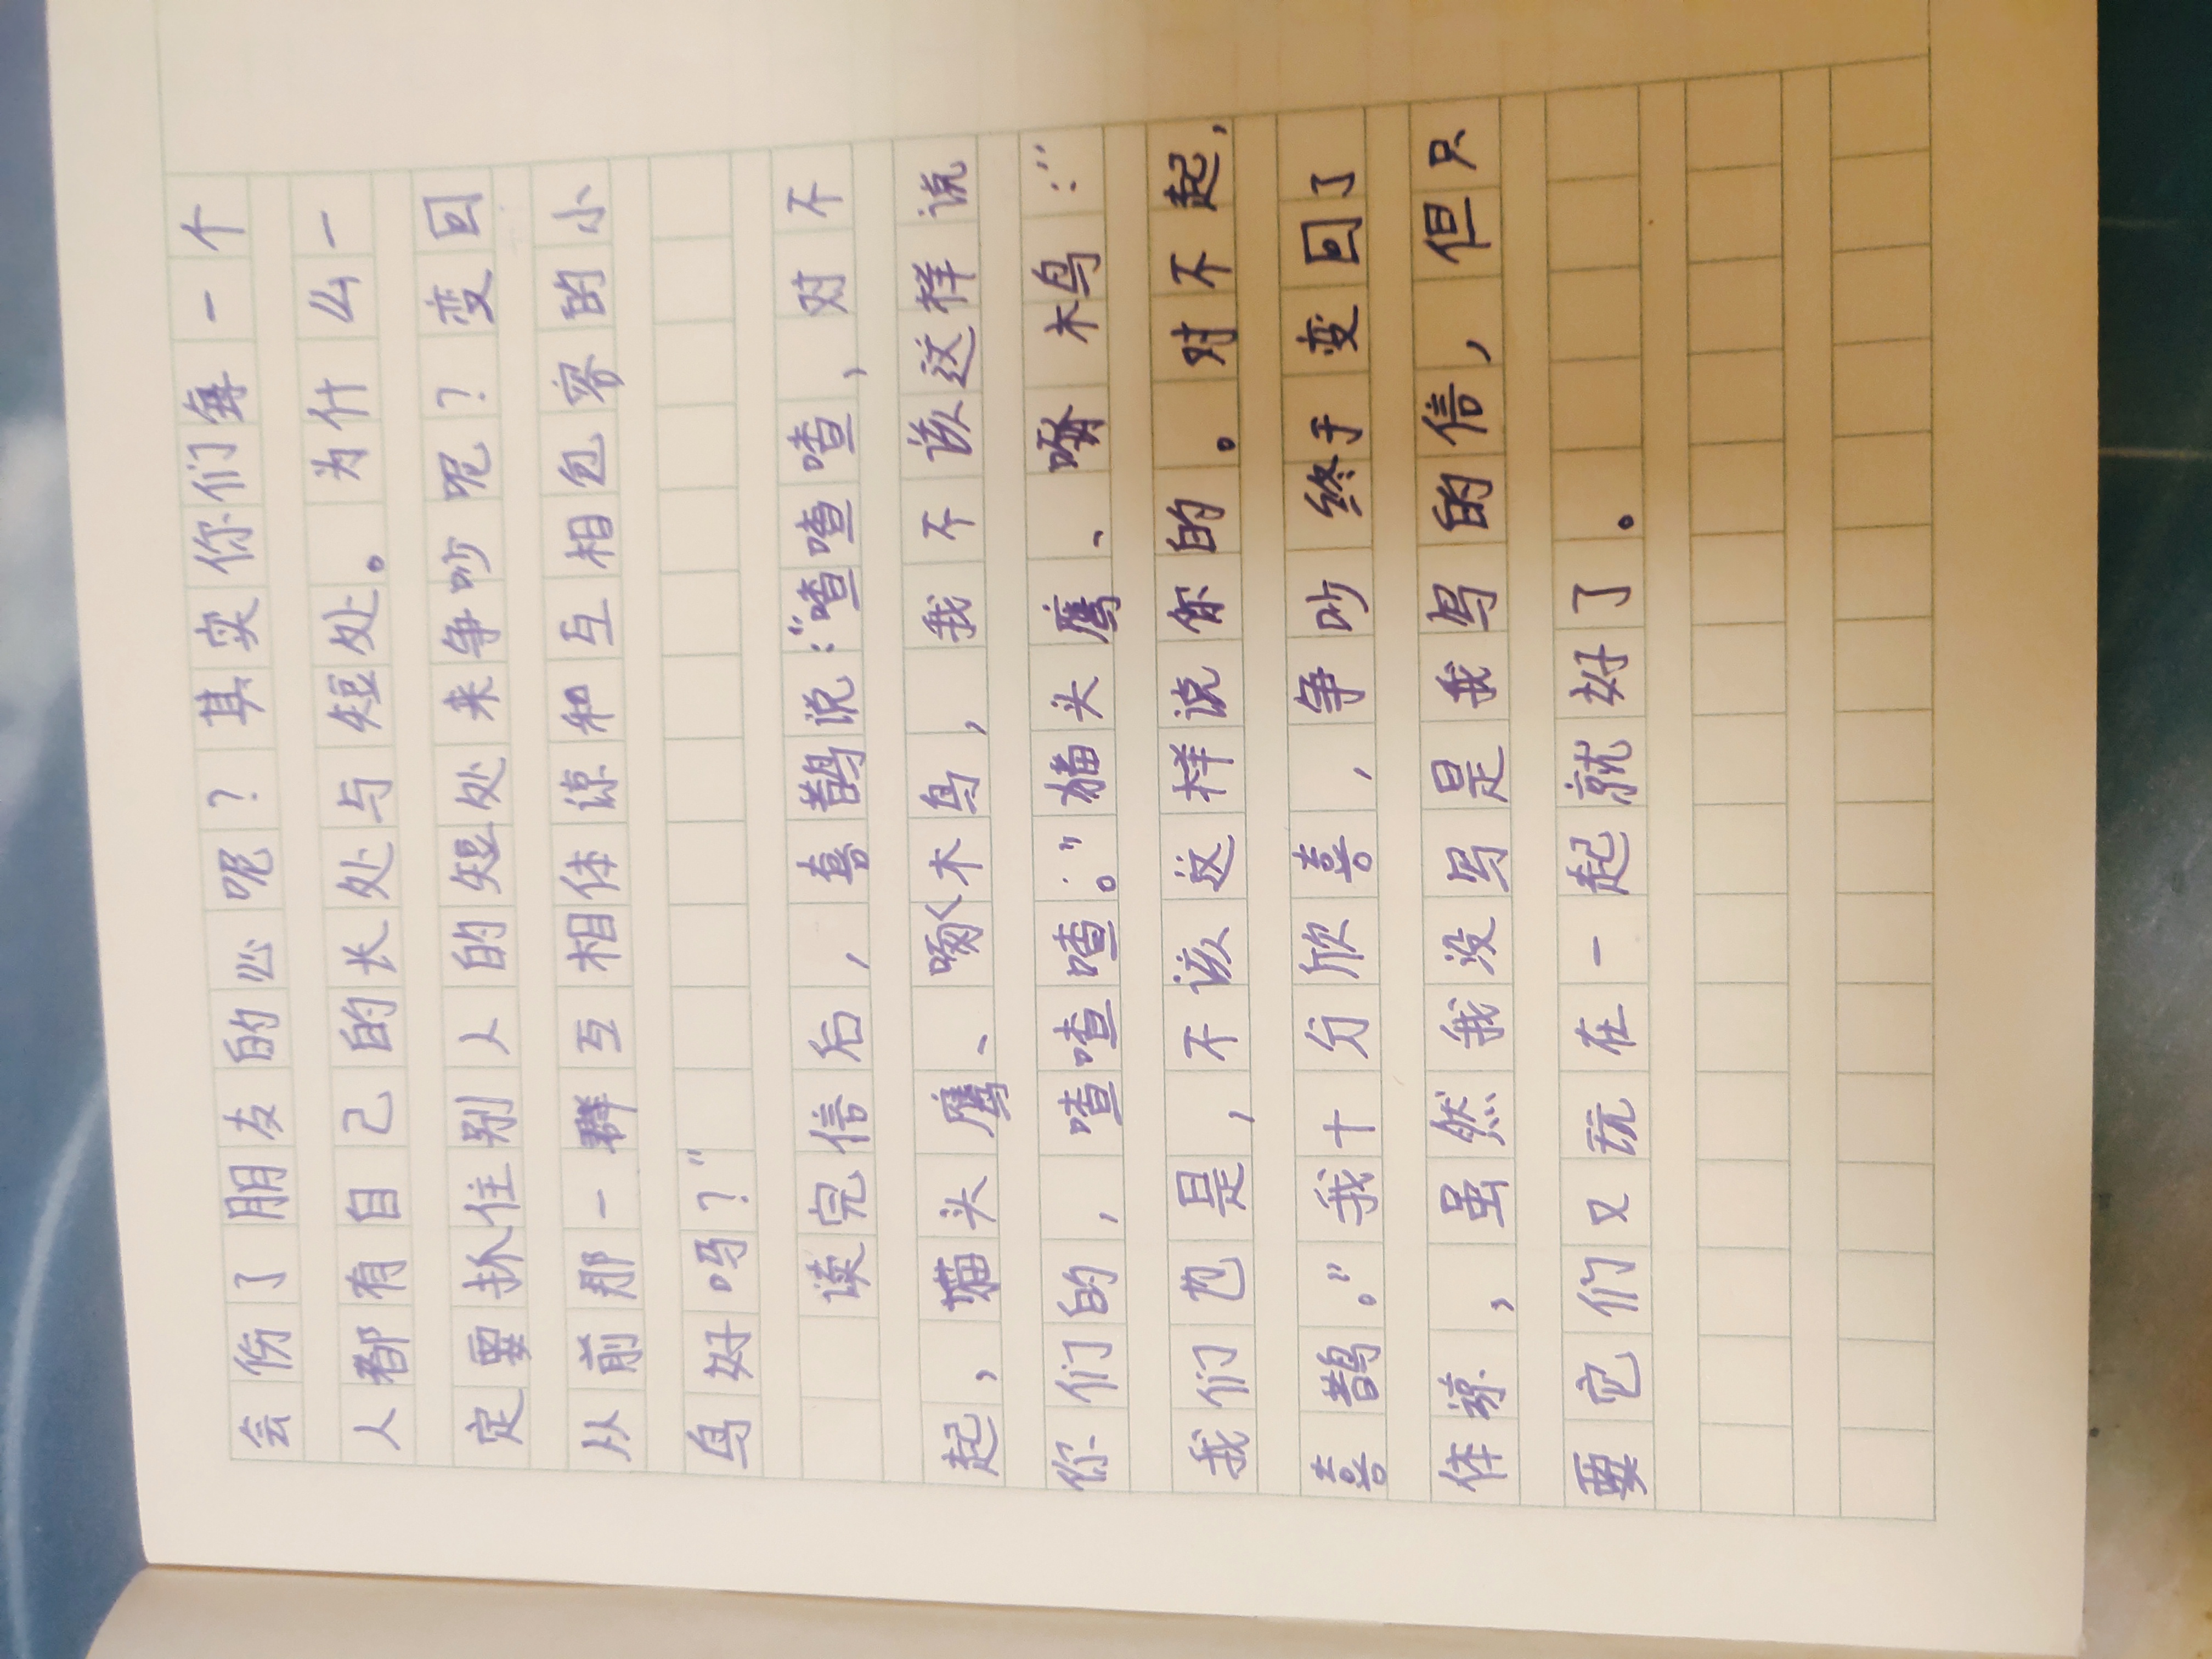 会伤了朋友的心呢？其实你们每一个
人都有自己的长处与短处。为什么一
定要抓住别人的短处来争吵呢？变回
从前那一群互相体谅和互相包容的小
鸟好吗？”
读完信后，喜鹊说：“喳喳喳，对不
起，猫头鹰、啄木鸟，我不该这样说
你们的，喳喳喳。”猫头鹰、啄木鸟：“
我们也是，不该这样说你的。对不起，
喜鹊。”我十分欣喜，争吵终于变回了
体谅，虽然我没写是我写的信，但只
要它们又玩在一起就好了。